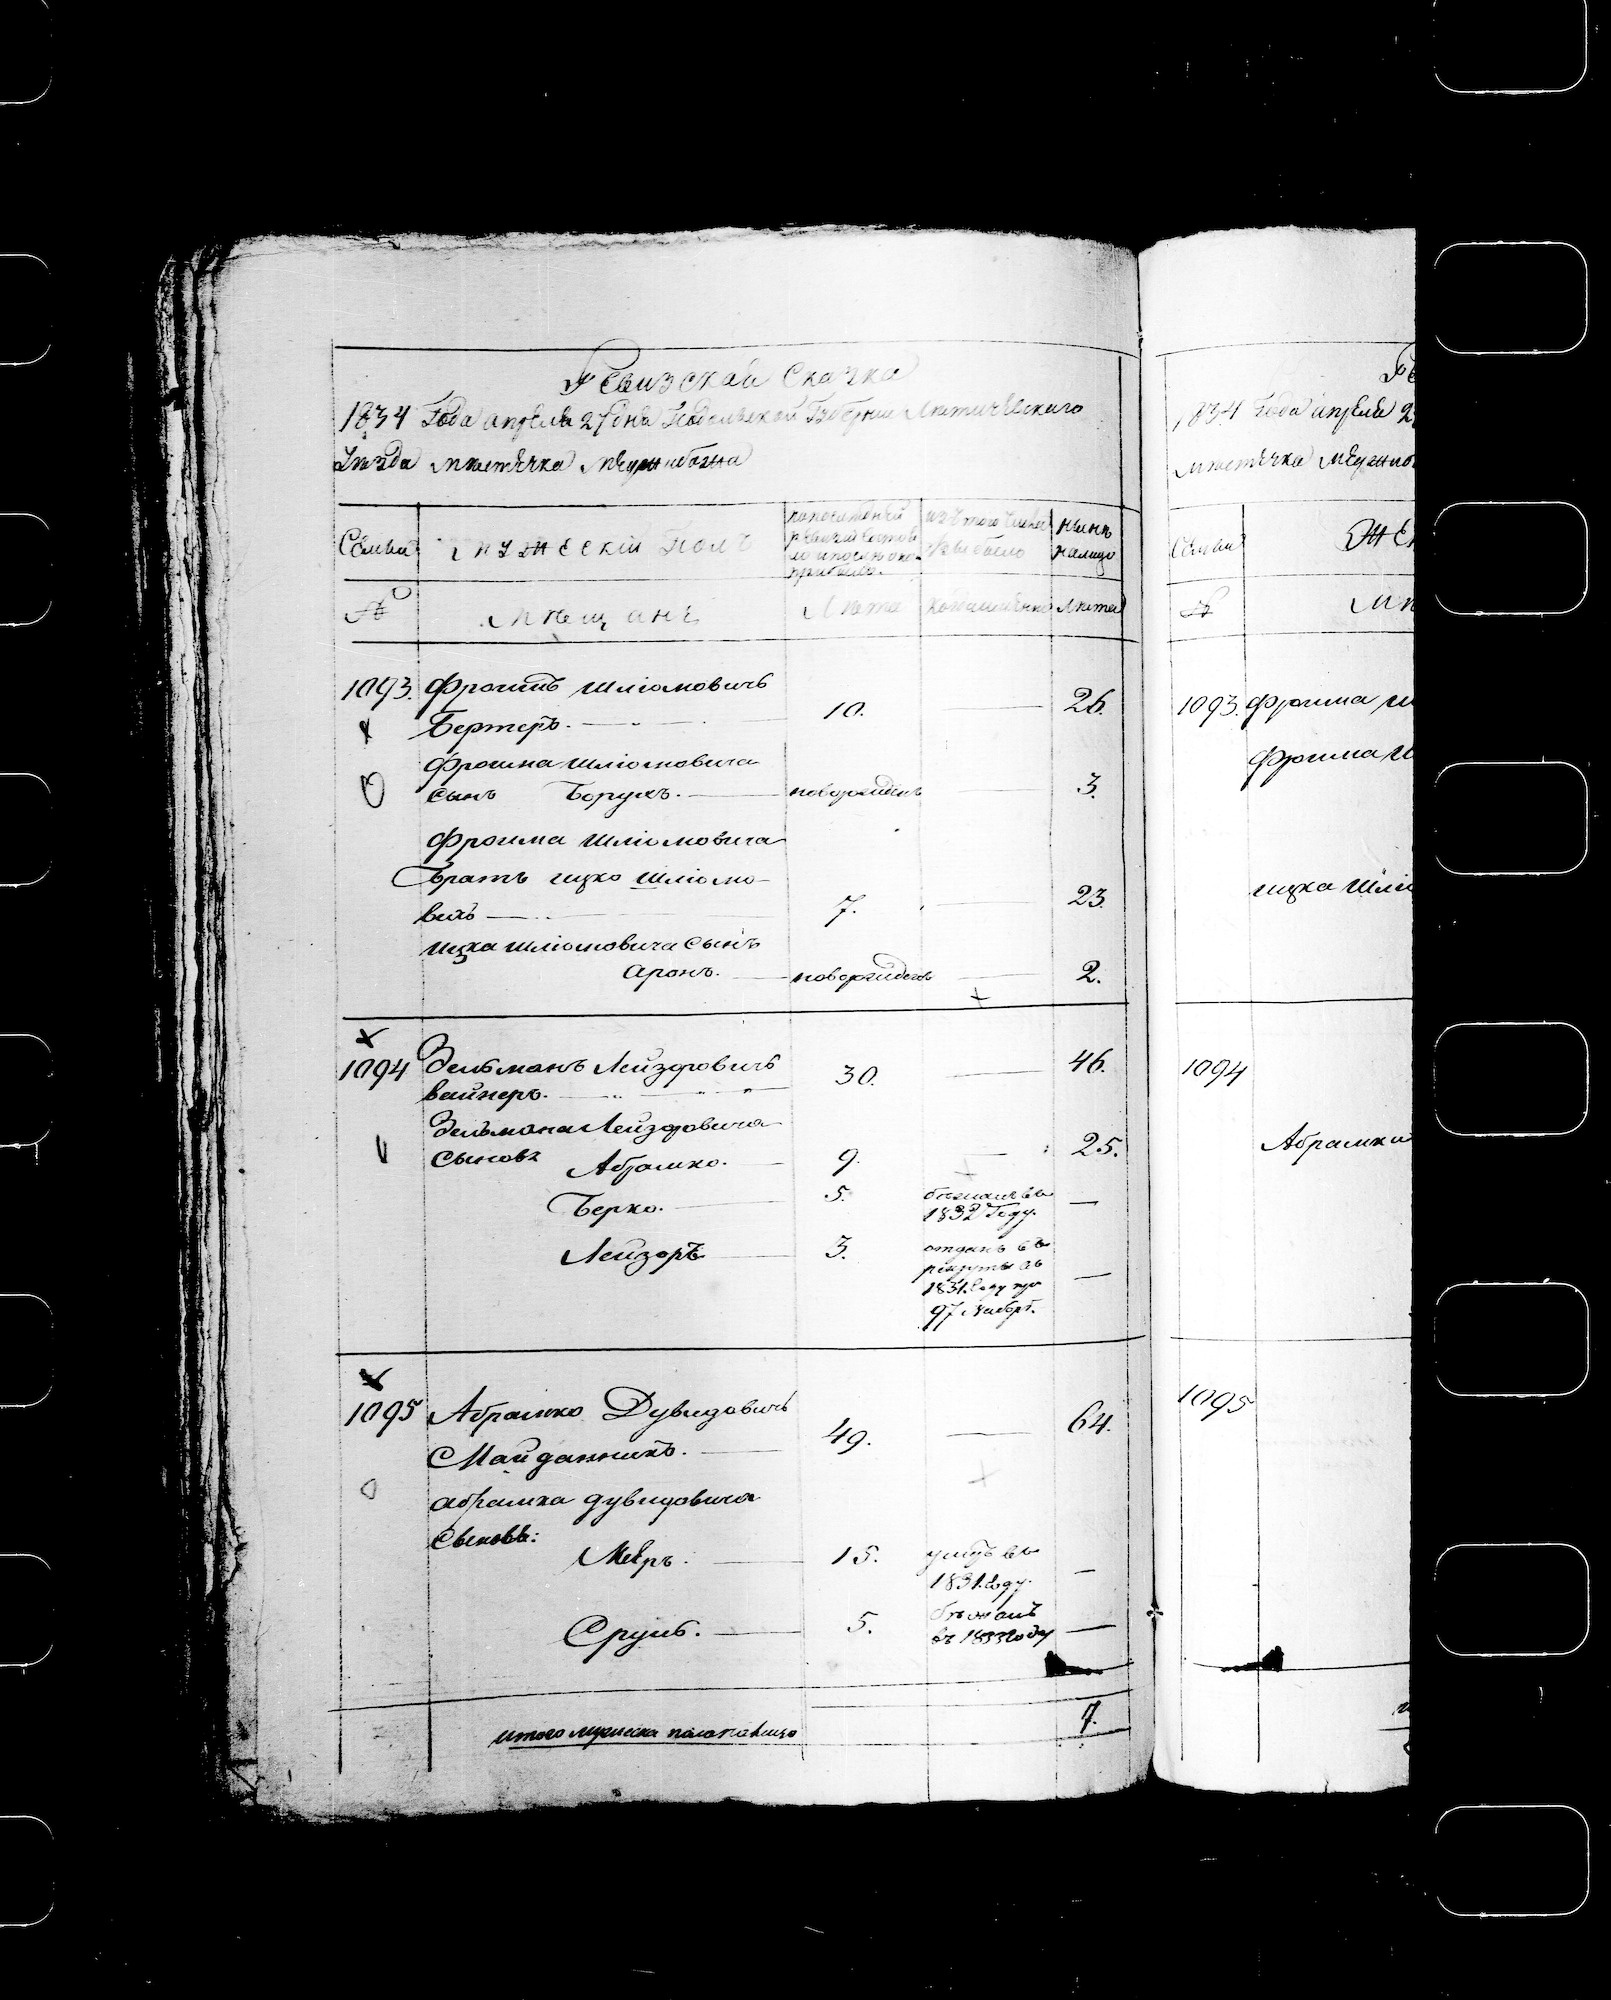 Ревизская Сказка
1834 Года апреля 27 дня Подольской Губернии Летичевскаго
Уезда местечка Меджибожа
Семьи
Мужеский Полъ
по последней ревизии состояло и после оной прибыло.
изъ того числа выбыло
Ныне налицо
№
Мещанъ
Лета
когда именно
Лета
1093. Фроимъ Шліомовичъ
Бертеръ. 10. 26.
Фроима Шліомовича
сынъ Борухъ. новорожденъ 3.
Фроима Шліомовича
Братъ ицко Шліомо-
вичъ 7. 23.
ицка Шліомовича сынъ
Аронъ. новорожденъ 2.
1094 Зельманъ Лейзоровичъ 46.
вайнеръ. 30.
Зельмана Лейзоровича
сыновья Абрамко. 9. 25.
Берко. 5. бежалъ въ
1832 Году. —
Лейзоръ 3. отданъ въ
рекруты въ
1831. Году
97 Наборъ. —
1095 Абрамко Дувидовичъ 64.
Майданникъ. 49.
абрамка дувидовича
Сыновья:
Мееръ. 15. умеръ въ
1831. году. —
Сруль. 5. бежалъ
въ 1833 году —
итого мужеска пола налицо 7.
1834 Года апреля 2
местечка Меджибо
Семьи
ЖЕ
№
Ме
1093. Фроима Ш
Фроима Ш
ицка Шліо
1094
Абрамки
1095